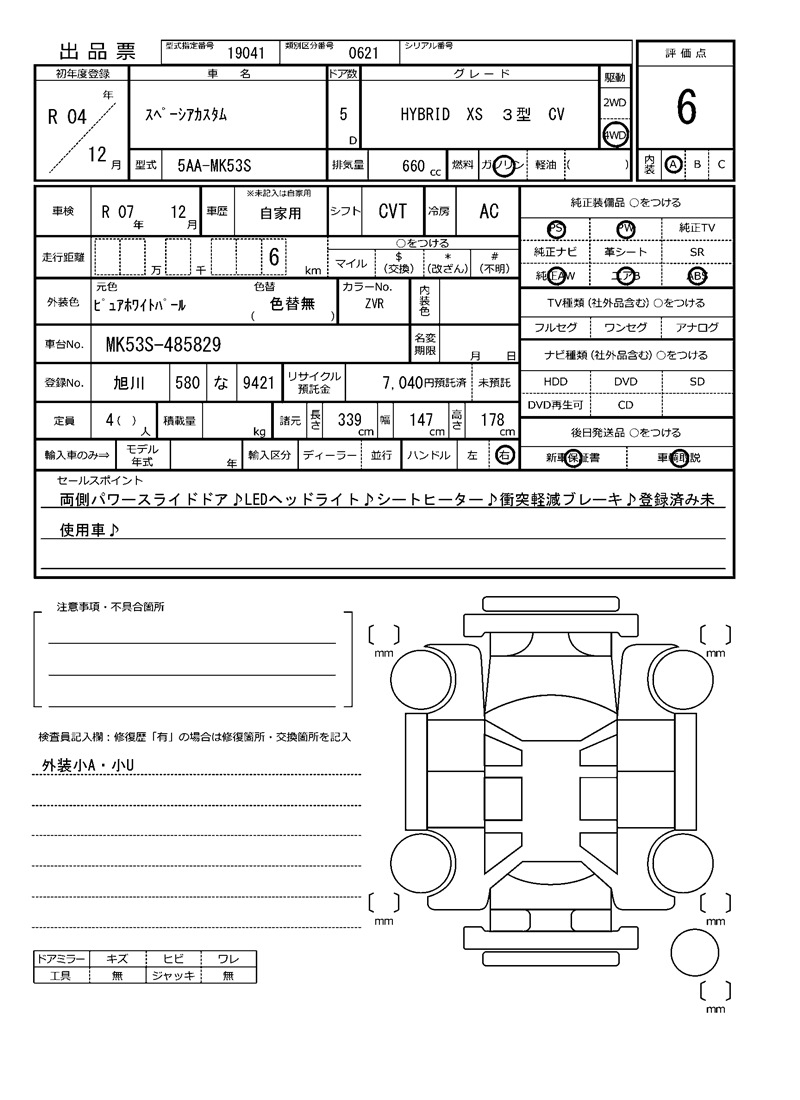 出品票 型式指定番号 19041 類別区分番号 0621 シリアル番号
評価点
初年度登録 車名 ドア数 グレード 駆動
R 04 年 12 月
ｽﾍﾟｰｼｱｶｽﾀﾑ 5 D HYBRID XS 3型 CV 2WD 4WD
6
型式 5AA-MK53S 排気量 660 cc 燃料 ガソリン 軽油 ( )
内装 A B C
車検 R 07 年 12 月 車歴 ※未記入は自家用 自家用 シフト CVT 冷房 AC
走行距離 万 千 6 km ○をつける マイル $(交換) *(改ざん) #(不明)
外装色 元色 ﾋﾟｭｱﾎﾜｲﾄﾊﾟｰﾙ 色替 ( 色替無 ) カラーNo. ZVR 内装色
車台No. MK53S-485829 名変期限 月 日
登録No. 旭川 580 な 9421 リサイクル預託金 7,040円預託済 未預託
定員 4 ( ) 人 積載量 kg 諸元 長さ 339 cm 幅 147 cm 高さ 178 cm
輸入車のみ⇒ モデル年式 年 輸入区分 ディーラー 並行 ハンドル 左 右
純正装備品 ○をつける
PS PW 純正TV
純正ナビ 革シート SR
純正AW エアB ABS
TV種類(社外品含む)○をつける
フルセグ ワンセグ アナログ
ナビ種類(社外品含む)○をつける
HDD DVD SD
DVD再生可 CD
後日発送品 ○をつける
新車保証書 車輌取説
セールスポイント
両側パワースライドドア♪LEDヘッドライト♪シートヒーター♪衝突軽減ブレーキ♪登録済み未
使用車♪
注意事項・不具合箇所
検査員記入欄：修復歴「有」の場合は修復箇所・交換箇所を記入
外装小A・小U
ドアミラー キズ ヒビ ワレ
工具 無 ジャッキ 無
mm mm
mm mm
mm